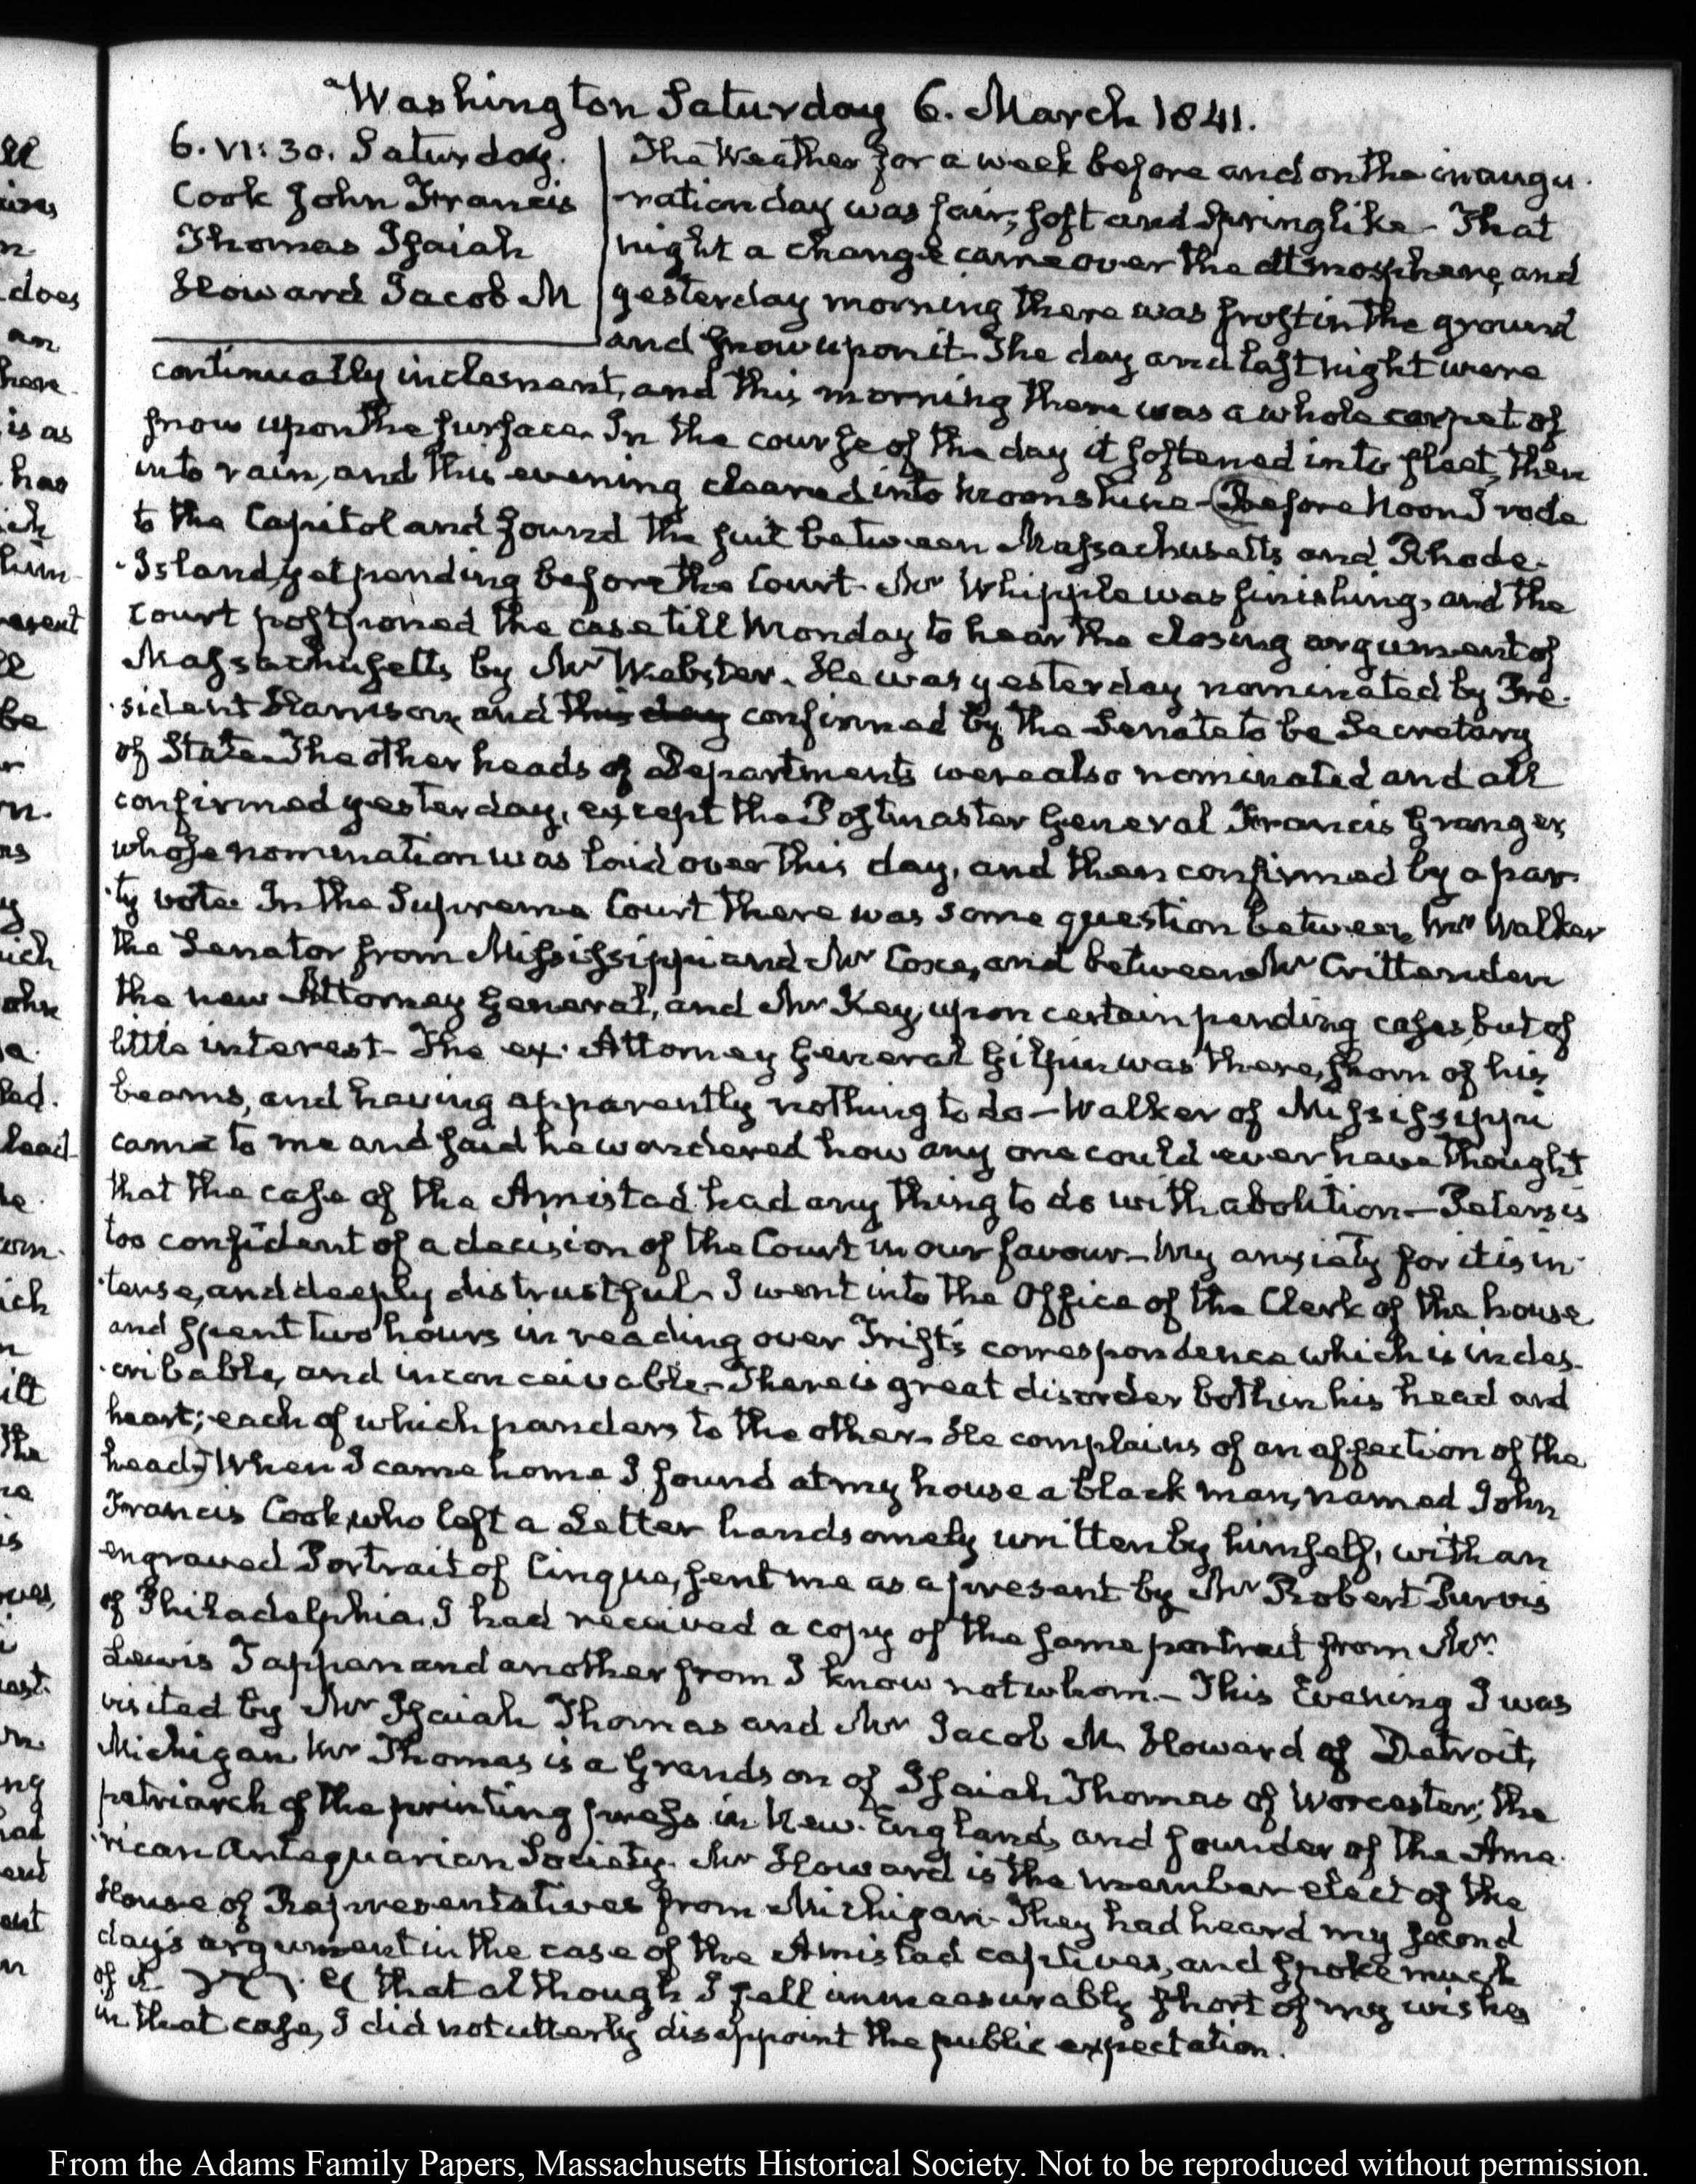 Washington Saturday 6. March 1841.
6. VI: 30. Saturday.
Cook John Francis
Thomas Isaiah
Howard Jacob M
The Weather for a week before and on the inaugu-
ration day was fair, soft and Springlike - That
night a change came over the atmosphere, and
yesterday morning there was frost in the ground
and snow upon it. The day and last night were
continually inclement, and this morning there was a whole carpet of
snow upon the surface. In the course of the day it softened into sleet, then
into rain, and this evening cleared into moonshine - Before Noon I rode
to the Capitol and found the suit between Massachusetts and Rhode-
-Island, yet pending before the Court. Mr Whipple was finishing, and the
Court postponed the case till Monday to hear the closing argument of
Massachusetts by Mr Webster. He was yesterday nominated by Pre-
-sident Harrison, and this day confirmed by the Senate to be Secretary
of State. The other heads of Departments were also nominated and all
confirmed yesterday, except the Postmaster General Francis Granger,
whose nomination was laid over this day, and then confirmed by a par-
-ty vote. In the Supreme Court there was some question between Mr Walker
the Senator from Mississippi and Mr Coxe, and between Mr Crittenden
the new Attorney General, and Mr Key, upon certain pending cases, but of
little interest - The ex-Attorney General Gilpin was there, shorn of his
beams, and having apparently nothing to do - Walker of Mississippi
came to me and said he wondered how any one could ever have thought
that the case of the Amistad had any thing to do with abolition - Peters is
too confident of a decision of the Court in our favour - My anxiety for it is in-
-tense, and deeply distrustful. I went into the Office of the Clerk of the house
and spent two hours in reading over Trist's correspondence which is indes-
-cribable, and inconceivable - There is great disorder both in his head and
heart; each of which panders to the other - He complains of an affection of the
head - When I came home I found at my house a black man, named John
Francis Cook, who left a Letter handsomely written by himself, with an
engraved Portrait of Cinque, sent me as a present by Mr Robert Purvis
of Philadelphia. I had received a copy of the same portrait from Mr
Lewis Tappan and another from I know not whom. - This Evening I was
visited by Mr Isaiah Thomas and Mr Jacob M. Howard of Detroit,
Michigan. Mr Thomas is a Grandson of Isaiah Thomas of Worcester; the
patriarch of the printing press in New-England, and founder of the Ame-
-rican Antiquarian Society. Mr Howard is the member elect of the
House of Representatives from Michigan - They had heard my second
day's argument in the case of the Amistad captives, and spoke much
of it. that although I fell immeasurably short of my wishes
in that case, I did not utterly disappoint the public expectation.
From the Adams Family Papers, Massachusetts Historical Society. Not to be reproduced without permission.